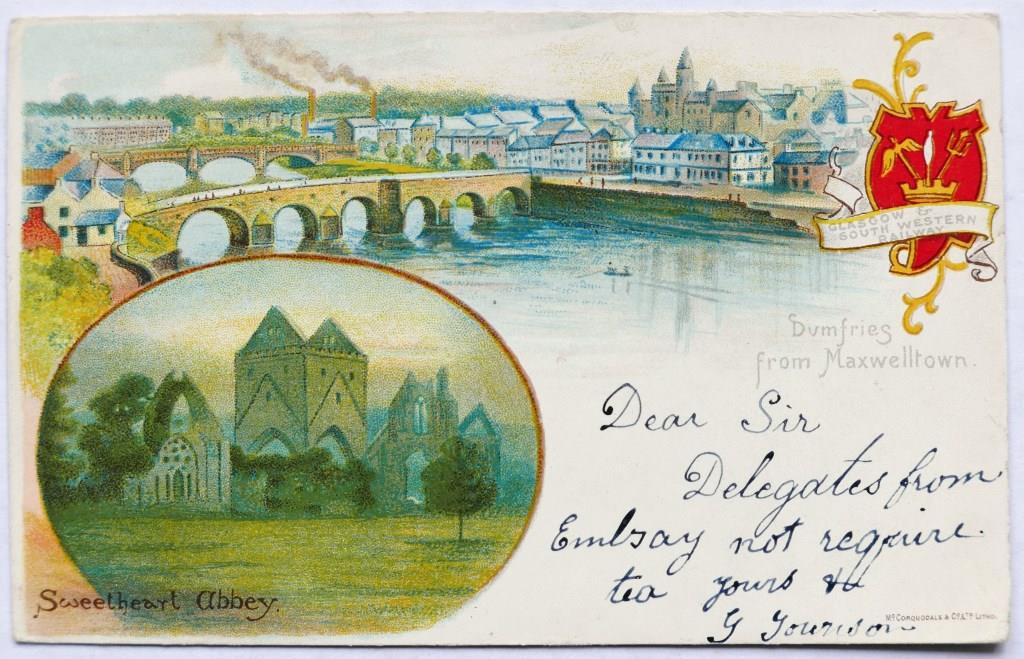 GLASGOW &
SOUTH WESTERN
RAILWAY
Dumfries
from Maxwelltown.
Dear Sir
Delegates from
Embsay not reqquire.
tea yours &c
G
Sweetheart Abbey.
McCORQUODALE & Co. LTD. LITHO.